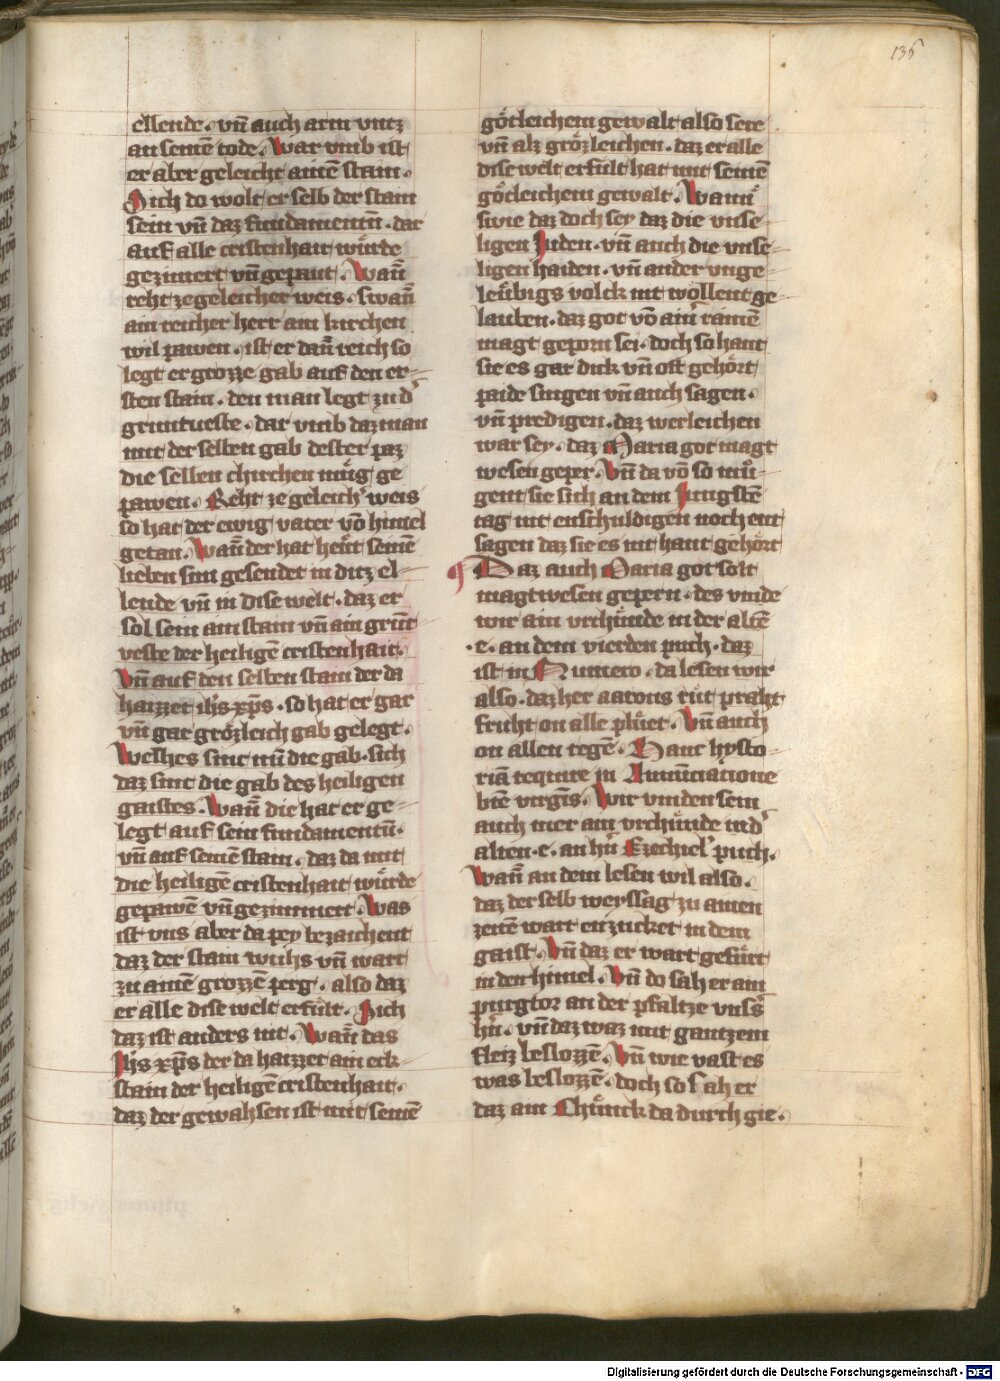 136
ellende. vnd̄ auch arm vntz
an seinē tode. War vmb ist
er aber geleicht ainē stain.
Sich do wolt er selb der stain
sein vn̄ daz fundamentū. dar
auf alle cristenhait würde
gezimert vn̄ gepaut. Wañ
reht zegeleicher weis. swañ
ain reicher herr ain kirchen
wil pawen. ist er dañ reich so
legt er grozze gab auf den er-
sten stain. den man legt zu d'
gruntueste. dar vmb daz man
mit der selben gab dester paz
die selben chirchen müg ge
pawen. Reht ze geleich' weis
so hat der ewig vater vō himel
getan. Wañ der hat heüt seinē
lieben sun gesendet in ditz el-
lende vn̄ in dise welt. daz er
sol sein ain stain vn̄ ain grūt
veste der heiligē cristenhait.
Vn̄ auf den selben stain der da
haizzet ih̄s xp̄s. so hat er gar
vn̄ gar grözleich gab gelegt.
Welhes sint nū die gab. sich
daz sint die gab des heiligen
gaistes. Wañ die hat er ge-
legt auf sein fundamentū.
vn̄ auf seinē stain. daz da mit
die heiligē cristenhait würde
gepawē vn̄ gezimmert. Was
ist vns aber da pey bezaichent
daz der stain wuhs vn̄ wart
zu ainē grozzē perg. also daz
er alle dise welt erfült. Sich
daz ist anders nit. Wañ das
Ih̄s xp̄s der da haizzet ain eck-
stain der heiligē cristenhait.
daz der gewahsen ist mit seinē
götleichem gewalt also sere
vn̄ alz grözleichen. daz er alle
dise welt erfült hat mit seinē
götleichem gewalt. Wann'
swie daz doch sey daz die vnse-
ligen Juden. vn̄ auch die vnse-
ligen haiden. vn̄ ander vnge-
leübigs volck nit wöllent ge-
lauben. daz got vō ain' rainē
magt geporn sei. doch so hant
sie es gar dick vn̄ oft gehört
paide singen vn̄ auch sagen.
vn̄ predigen. daz werleichen
war sey. daz Maria got magt
wesen geper. Vn̄ da vō so mü-
gent sie sich an dem Jungstē
tag nit enschuldigen noch ent
sagen daz sie es nit hant gehört
¶ Daz auch Maria got solt
magt wesen gepern. des vinde
wir ain vrchünde in der altē
.e. an dem vierden puch. daz
ist in Numero. da lesen wir
also. daz her aarons rüt praht
fruht on alle plüet. Vn̄ auch
on allen regē. Hanc hysto-
riā require in Annūciatione
bte virgīs. Wir vinden sein
auch mer ain vrchünde in d'
alten .e. an hn̄ Ezechiel' puch.
Wañ an dem lesen wil also.
daz der selb weyssag zu ainen
zeitē wart enzucket in dem
gaist. Vn̄ daz er wart gefürt
in den himel. Vn̄ do sah er ain
purgtor an der pfaltze vnss'
hn̄. vn̄ daz waz mit gantzem
fleiz beslozzē. Vn̄ wie vast es
was beslozzē. doch so sah er
daz ain Chünck da durch gie.
Digitalisierung gefördert durch die Deutsche Forschungsgemeinschaft - DFG